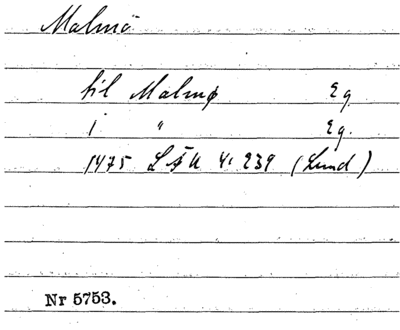 Malmö
til Malmø Eg
i " Eg.
1475 LÄU 4: 239 (Lund)
Nr 5753.